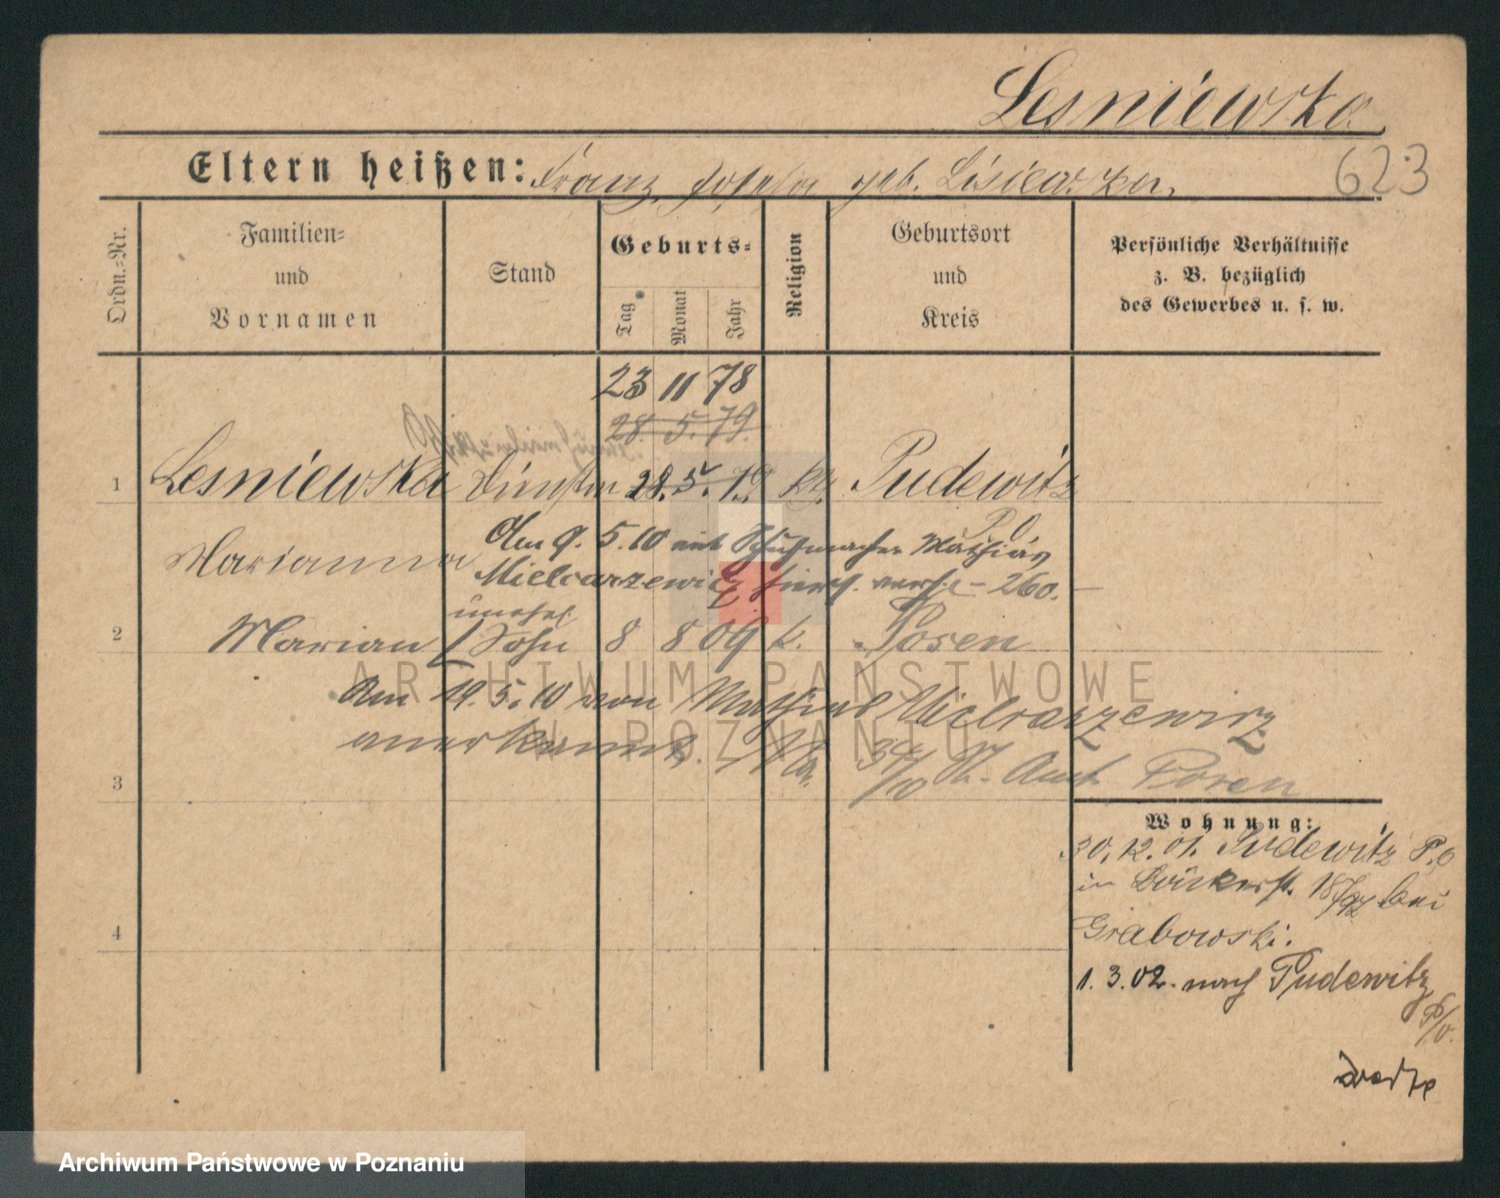 Lesniewska
623
Eltern heißen: Franz, Josefa geb. Lisiewska.
Ordn.-Nr.
Familien- und Vornamen
Stand
Geburts-
Tag
Monat
Jahr
Religion
Geburtsort und Kreis
Persönliche Verhältnisse
z. B. bezüglich
des Gewerbes u. s. w.
23 11 78
28. 5. 79.
1 Lesniewska 28. 5. 79 kt. Pudewitz
P. O.
Marianna
Am 9. 5. 10 mit Schuhmacher Mathias
Mielcarzewicz hiers. verh. — 260. —
unehel.
2 Marian / Sohn 8 8 09 k. Posen
Am 19. 5. 10 von Mathias Mielcarzewicz
anerkannt. Amt Posen
3
4
Wohnung:
30. 12. 01. Pudewitz P. O
in Bäckerst. bei
Grabowski.
1. 3. 02. nach Pudewitz
P/O.
ARCHIWUM PAŃSTWOWE
W POZNANIU
Archiwum Państwowe w Poznaniu